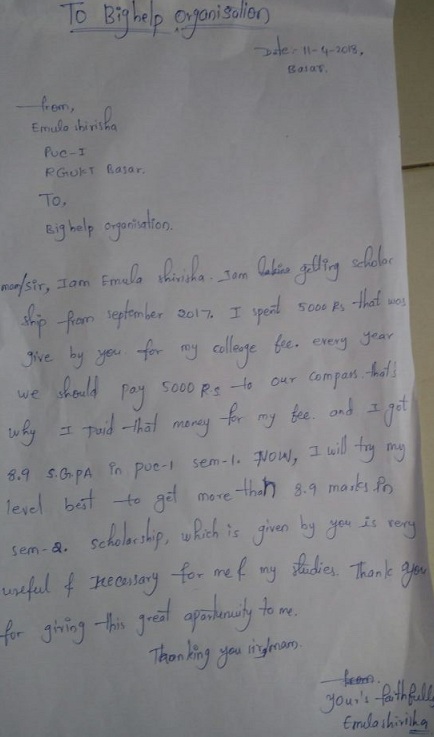 To Bighelp organisation
Date: 11-4-2018,
Basar.
from,
Emula shirisha
PUC-I
RGUKT Basar.
To,
Big help organisation.
mam/sir, Iam Emula shirisha. Iam getting scholar
ship from september 2017. I spent 5000 Rs that was
give by you for my colleage fee. every year
we should pay 5000 Rs to our compass. that's
why I paid that money for my fee. and I got
8.9 S.G.PA in puc-1 sem-1. Now, I will try my
level best to get more than 8.9 marks in
sem-2. scholarship, which is given by you is very
useful & necessary for me & my studies. Thank you
for giving this great aportunuity to me.
Thanking you sir/mam.
from.
your's faithfully
Emulashirisha